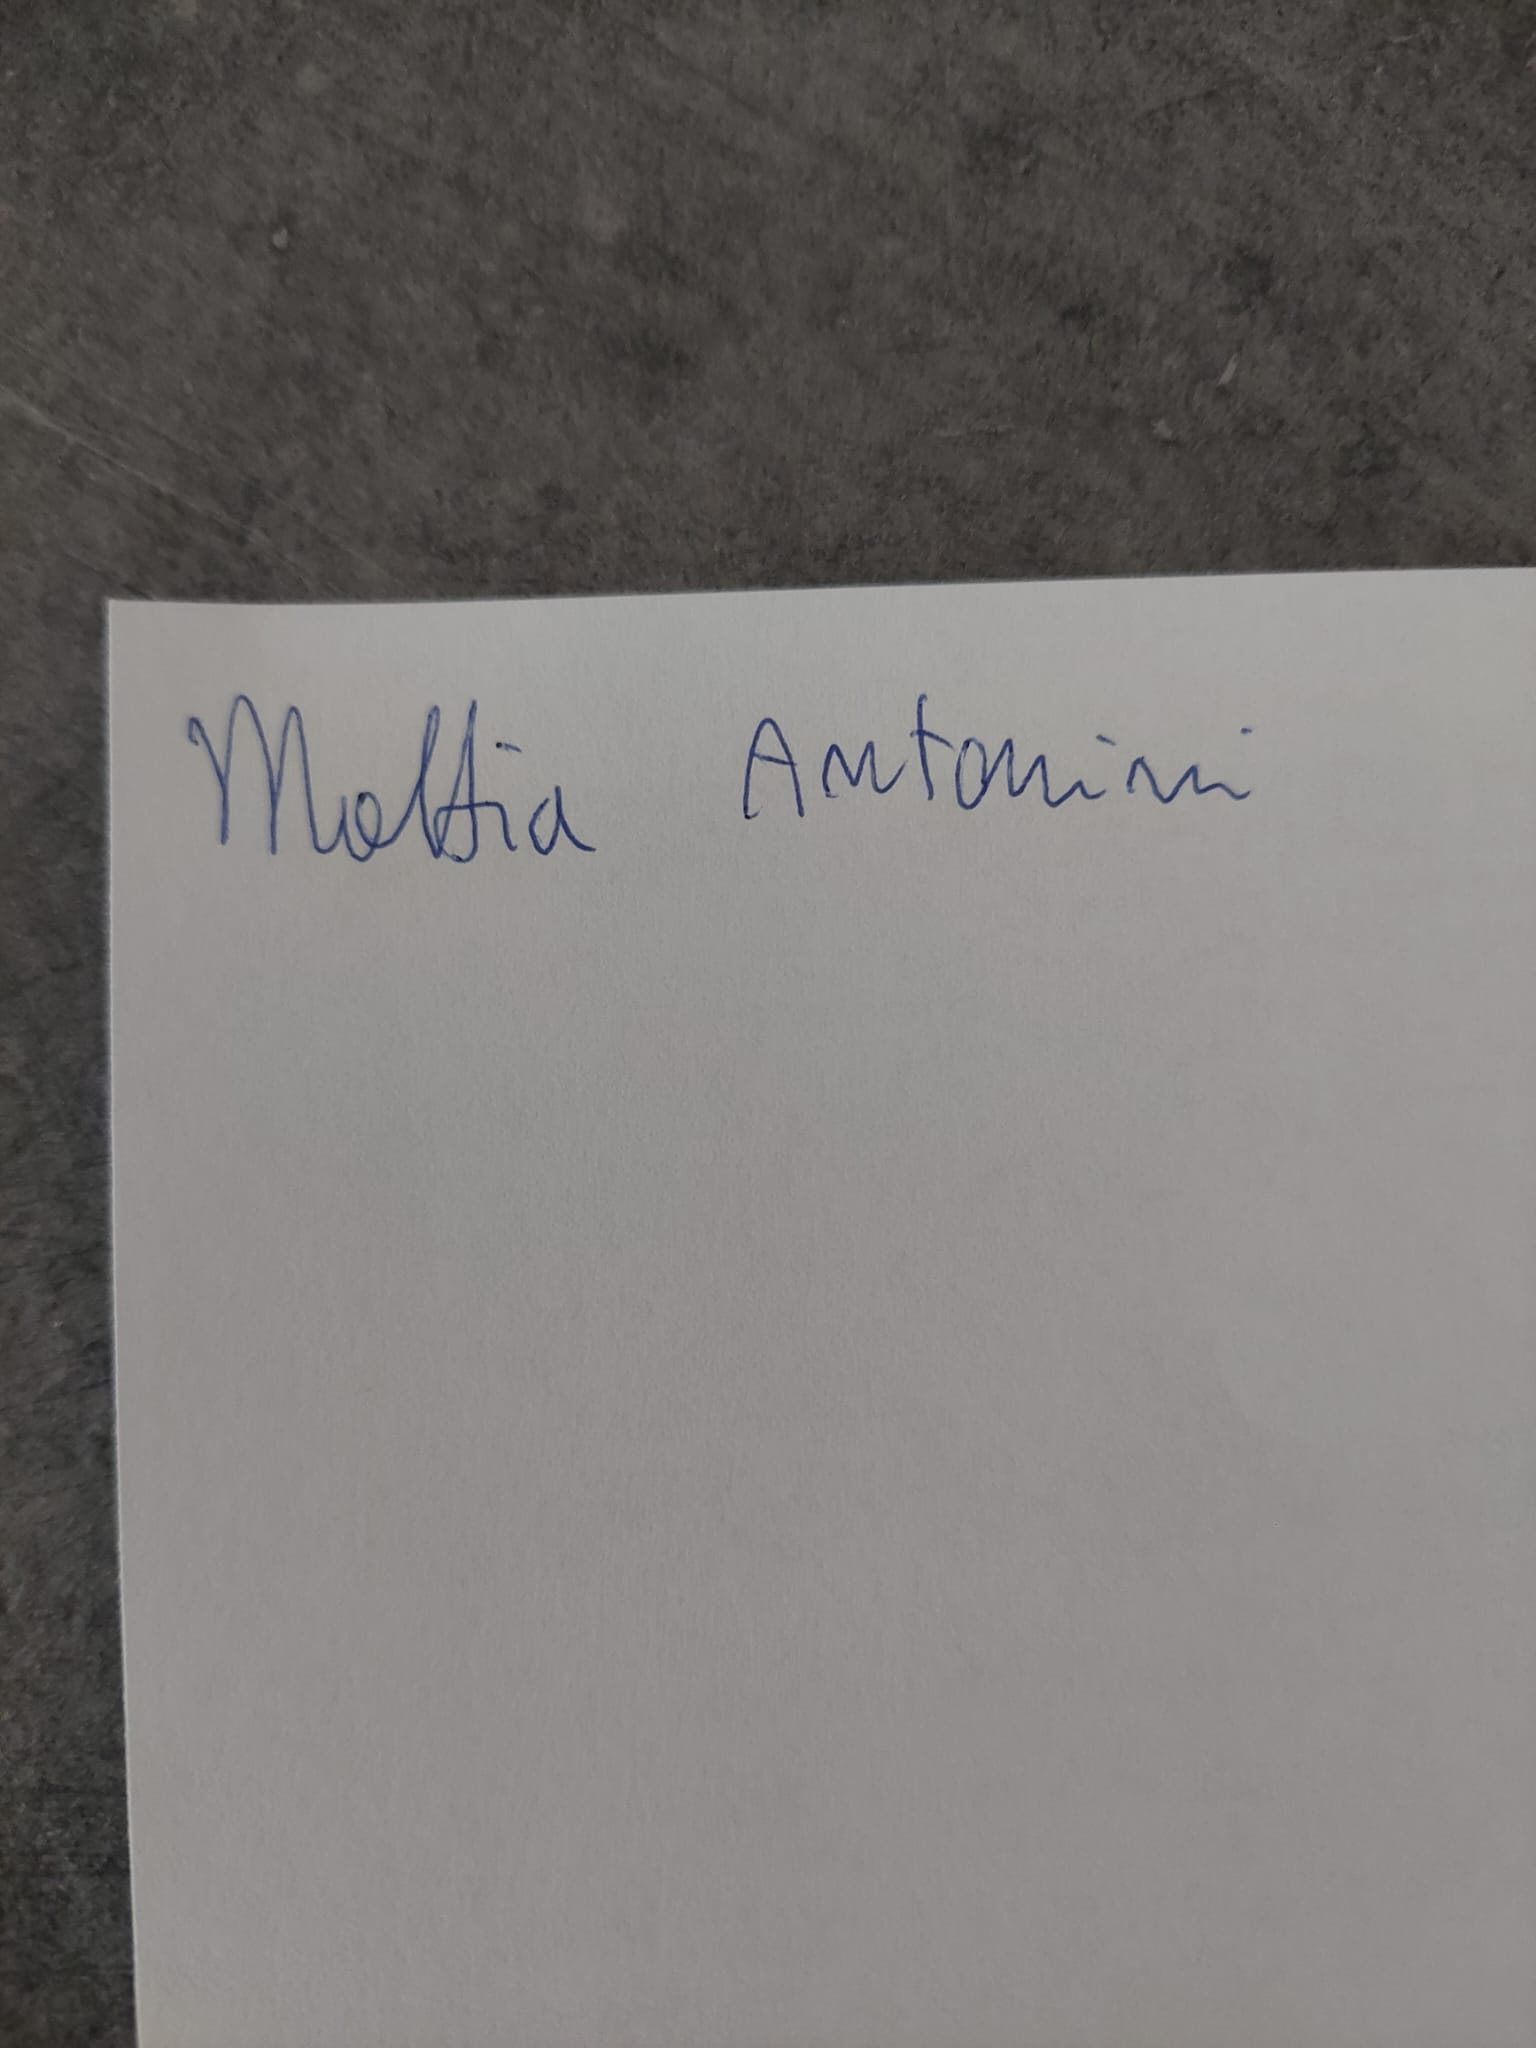 Mattia Antonini